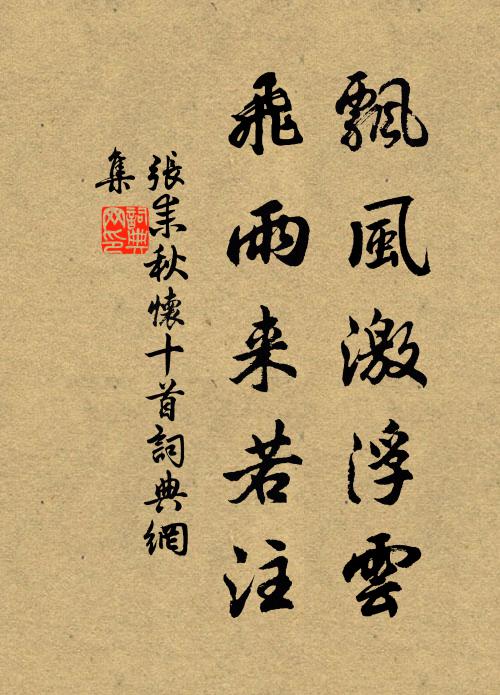 飄風激浮雲
飛雨来若注
張耒秋懷十首詞典網
集
詞典網印